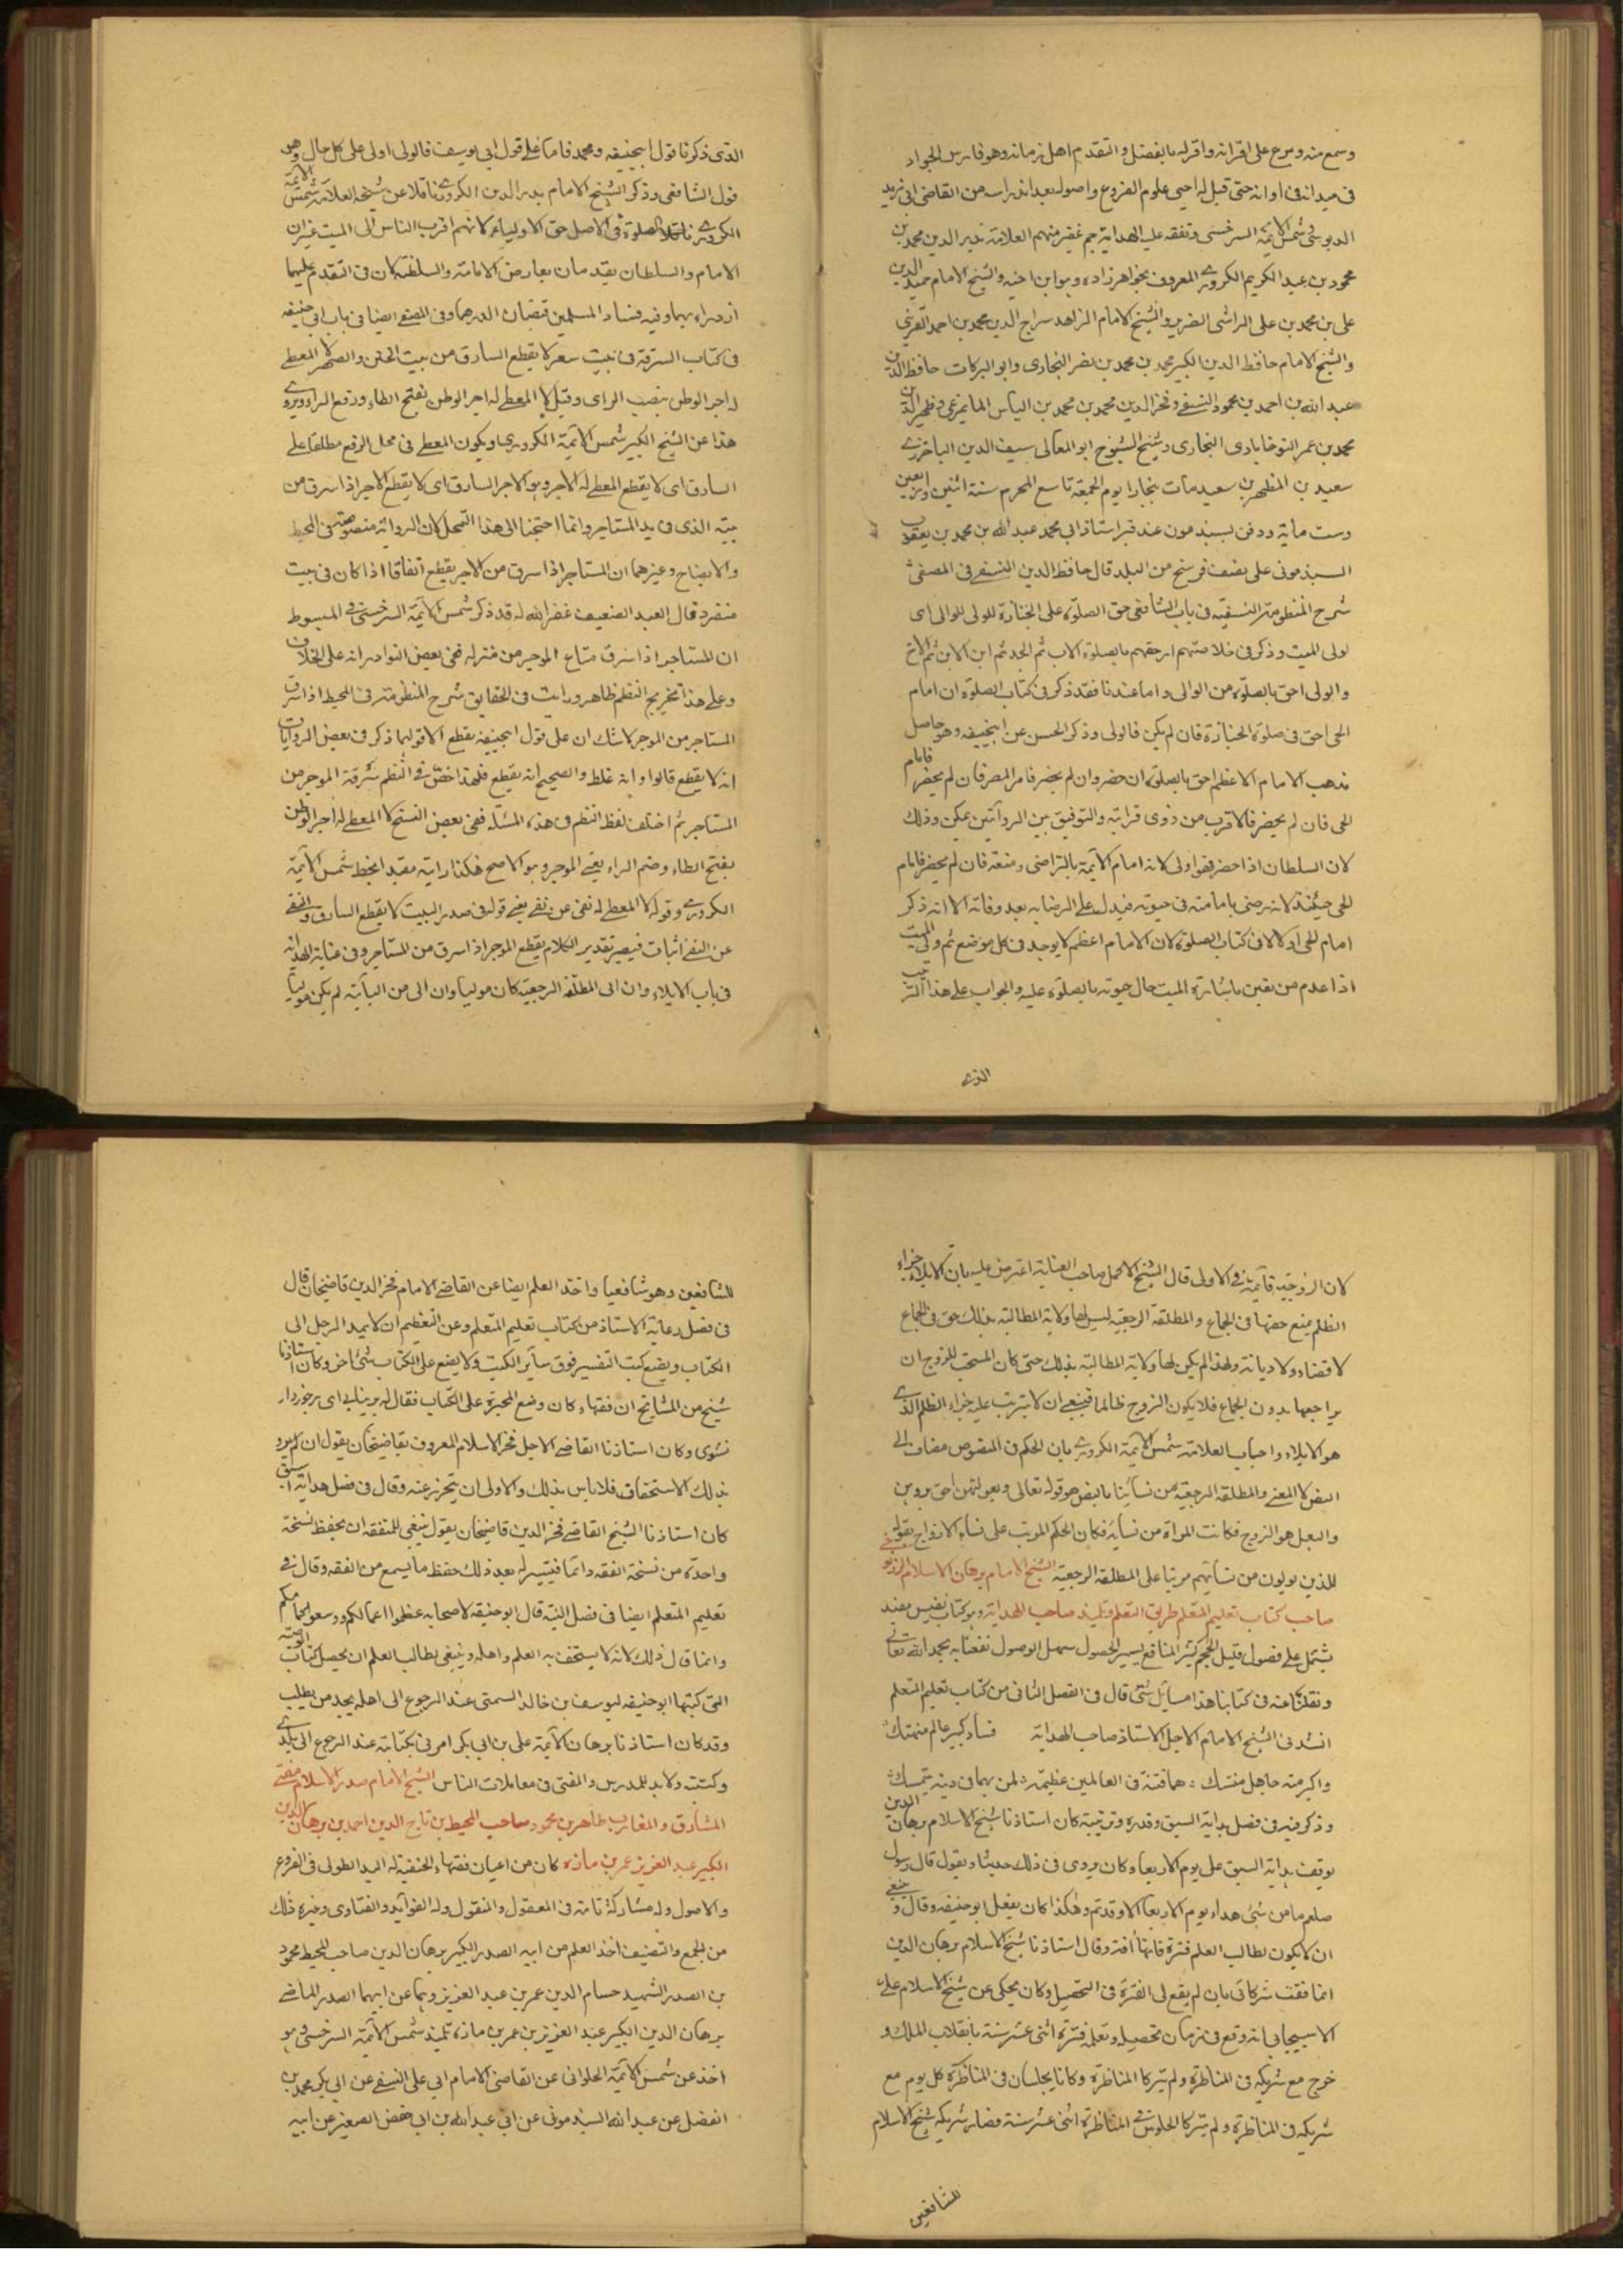 وسمع منه وبرع على اقرانه واقر له بالفضل والتقدم اهل زمانه وهو فارس الجواد
فى ميدانه فى اوانه حتى قيل له احيى علوم الفروع واصوله بعد اندراسه من القاضى ابى زيد
الدبوسى وشمس الائمة السرخسى وتفقه عليه الهداية جم غفير منهم العلامة بدر الدين محمد بن
محمود بن عبد الكريم الكردرى المعروف بخواهر زاده وهو ابن اخيه والشيخ الامام حميد الدين
على بن محمد بن على الرامشى الضرير والشيخ الامام الزاهد سراج الدين محمد بن احمد القزينى
والشيخ الامام حافظ الدين الكبير محمد بن محمد بن نصر البخارى وابو البركات حافظ الدين
عبد الله بن احمد بن محمود النسفى وفخر الدين محمد بن محمد بن الياس المايمرغى وظهير الدين
محمد بن عمر النوخابادى البخارى وشيخ الشيوخ ابو المعالى سيف الدين الباخرزى
سعيد بن المطهر بن سعيد مات ببخارا يوم الجمعة تاسع المحرم سنة اثنين واربعين
وست ماية ودفن بسبذمون عند قبر استاذ ابى محمد عبد الله بن محمد بن يعقوب
السبذمونى على نصف فرسخ من البلد قال حافظ الدين النسفى فى المصفى
شرح المنظومة النسفيه فى باب الشافعى حق الصلوة على الجنازة للولى لا للوالى اى
لولى الميت وذكر فى خلاصتهم احقهم بالصلوة الاب ثم الجد ثم ابن الابن ثم الاخ
والولى احق بالصلوة من الوالى واما عندنا فقد ذكر فى كتاب الصلوة ان امام
الحى احق فى صلوة الجنازة فان لم يكن فالولى وذكر الحسن عن ابيحنيفه وهو حاصل
مذهب الامام الاعظم احق بالصلوة ان حضر وان لم يحضر فامر المصر فان لم يحضر فامام
الحى فان لم يحضر فالاقرب من ذوى قرابته والتوفيق بين الروايتين ممكن وذلك
لان السلطان اذا حضر فهو اولى لانه امام الائمة بالتراضى ومنعه فان لم يحضر فامام
الحى حينئذ لانه رضى بامامته فى حيوته فيدل على الرضا به بعد وفاته الا انه ذكر
امام الحى اولا فى كتاب الصلوة لان الامام اعظم لا يوجد فى كل موضع ثم ولى الميت
اذا عدم من يقين باشارة الميت حال حيوته بالصلوة عليه والجواب على هذا الترتيب
الذى
الذى ذكرنا قول ابيحنيفه ومحمد فاما على قول ابى يوسف فالولى اولى على كل حال وهو
قول الشافعى وذكر الشيخ الامام بدر الدين الكردرى ناقلا عن شيخه العلامة شمس الائمة
الكردرى الصلوة فى الاصل حق الاولياء لانهم اقرب الناس الى الميت غير ان
الامام والسلطان يقدمان بعارض الامامة والسلطنة لان فى التقدم عليهما
ازدراء بهما وفيه فساد المسلمين قبضان الدرهما وفى المصفى ايضا فى باب ابى حنيفه
فى كتاب السرقة فى بيت شعر لا يقطع السارق من بيت الختن والصهر لا المعطى
له اجر الوطن بنصب الراى وقيل لا المعطى له اجر الوطن بفتح الطاء ورفع الراء ويروى
هذا عن الشيخ الكبير شمس الائمة الكردرى ويكون المعطى فى محل الرفع مطلقا على
السارق اى لا يقطع المعطى له الاجر وهو الاجر السارق اى لا يقطع الاجر اذا سرق من
بيته الذى فى يد المستاجر وانما احتجنا الى هذا التمحل لان الرواية منصوصة فى المحيط
والايضاح وغيرهما ان المستاجر اذا سرق من الاجر يقطع اتفاقا اذا كان فى بيت
منفرد قال العبد الضعيف غفر الله له قد ذكر شمس الائمة السرخسى فى المبسوط
ان المستاجر اذا سرق متاع الموجر من منزله ففى بعض النوادر انه على الخلاف
وعلى هذا تخريج النظم ظاهر ورايت فى الحقايق شرح المنظومة وفى المحيط اذا سرق
المستاجر من الموجر لا شك ان على قول ابيحنيفه يقطع الا قولهما ذكر فى بعض الروايات
انه لا يقطع قالوا وانه غلط والصحيح انه يقطع فلهذا خص فى النظم سرقة الموجر من
المستاجر ثم اختلف لفظ النظم فى هذه المسئلة ففى بعض النسخ لا المعطى له اجر الوطن
بفتح الطاء وضم الراء يعنى الموجر وهو الاصح هكذا رايته مقيدا بخط شمس الائمة
الكردرى وقوله لا المعطى له نفى عن نفى يعنى قوله فى صدر البيت لا يقطع السارق والنفى
عن النفى اثبات فيصير تقدير الكلام يقطع الموجر اذا سرق من المستاجر وفى عناية الهداية
فى باب الايلاء وان الى المطلقة الرجعية كان موليا وان الى من الباينة لم يكن موليا
لان الزوجية قايمة فى الاولى قال الشيخ الاكمل صاحب العناية اعترض عليه بان الايلاء جزاء
الظلم بمنع حقها فى الجماع والمطلقة الرجعية ليس لها ولاية المطالبة بذلك حق فى الجماع
لا قضاء ولا ديانة ولهذا لم يكن لها ولاية المطالبة بذلك حتى كان المستحب للزوج ان
يراجعها بدون الجماع فلا يكون الزوج ظالما فينبغى ان لا يترتب عليه جزاء الظلم الذى
هو الايلاء واجاب العلامة شمس الائمة الكردرى بان الحكم فى المنصوص مضاف الى
النص لا المعنى والمطلقة الرجعية من نسائنا بالنص وهو قوله تعالى وبعولتهن احق بردهن
والبعل هو الزوج فكانت المراة من نسائه فكان الحكم المرتب على نساء الازواج بقوله
للذين يولون من نسائهم مرتبا على المطلقة الرجعية الشيخ الامام برهان الاسلام الزرنوجى
صاحب كتاب تعليم المتعلم طريق التعلم وتلميذ صاحب الهداية وهو كتاب نفيس مفيد
يشتمل على فصول قليل الحجم كثير المنافع يسير الحصول سهل الوصول نفعنا به بحمد الله تعالى
ونقلنا عنه فى كتابنا هذا مسايل شتى قال فى الفصل الثانى من كتاب تعليم المتعلم
انشدنى الشيخ الامام الاجل الاستاذ صاحب الهداية فساد كبير عالم متهتك
واكبر منه جاهل متنسك هما فتنة فى العالمين عظيمة لمن بهما فى دينه يتمسك
وذكر فيه فى فصل بداية السبق وقدره وترتيبه كان استاذنا شيخ الاسلام برهان الدين
يوقف بداية السبق على يوم الاربعا وكان يروى فى ذلك حديثا ويقول قال رسول
صلعم ما من شئ بداء يوم الاربعا الا وقد تم وهكذا كان يفعل ابو حنيفه وقال وينبغى
ان لا يكون لطالب العلم فترة فانها افة وقال استاذنا شيخ الاسلام برهان الدين
انما فقت شركائى بان لم يقع لى الفترة فى التحصيل وكان يحكى عن شيخ الاسلام على
الاسبيجابى انه وقع فى زمان تحصيله وتعلمه فترة اثنى عشر سنة بانقلاب الملك و
خرج مع شريكه فى المناظرة ولم يتركا المناظرة وكانا يجلسان فى المناظرة كل يوم مع
شريكه فى المناظرة ولم يتركا الجلوس فى المناظرة اثنى عشر سنة فصار شريكه شيخ الاسلام
للشافعين
للشافعين وهو شافعيا واخذ العلم ايضا عن القاضى الامام فخر الدين قاضيخان قال
فى فصل رعاية الاستاذ من كتاب تعليم المتعلم وعن التعظيم ان لا يمد الرجل الى
الكتاب ويضع كتب التفسير فوق ساير الكتب ولا يضع على الكتاب شئ اخر وكان استاذنا
شيخ من المشايخ ان فقهاء كان وضع المحبرة على الكتاب فقال له برنيابى اى برخوردار
نشوى وكان استاذنا القاضى الاجل فخر الاسلام المعروف بقاضيخان يقول ان لم يرد
بذلك الاستخفاف فلا باس بذلك والاولى ان يتحرز عنه وقال فى فصل بداية السبق
كان استاذنا الشيخ القاضى فخر الدين قاضيخان يقول ينبغى للمتفقه ان يحفظ نسخة
واحدة من نسخة الفقه دائما فيتيسر له بعد ذلك حفظ ما يسمع من الفقه وقال فى
تعليم المتعلم ايضا فى فصل النية قال ابو حنيفه لاصحابه عظموا اعمالكم ووسعوا اكمامكم
وانما قال ذلك لانه لا يستخف به العلم واهله وينبغى لطالب العلم ان يحصل كتاب الوصية
التى كتبها ابو حنيفه ليوسف بن خالد السمتى عند الرجوع الى اهله يجد من يطلب
وقد كان استاذنا برهان الائمة على بن ابى بكر امرنى بكتابته عند الرجوع الى بلدى
وكتبته ولا بد للمدرس والمفتى فى معاملات الناس الشيخ الامام صدر الاسلام مفتى
المشارق والمغارب طاهر بن محمود صاحب المحيط بن تاج الدين احمد بن برهان الدين
الكبير عبد العزيز عمر بن مازه كان من اعيان فقهاء الحنفية له اليد الطولى فى الفروع
والاصول وله مشاركة تامة فى المعقول والمنقول وله الفوايد والفتاوى وغيره ذلك
من الجمع والتصنيف اخذ العلم من ابيه الصدر الكبير برهان الدين صاحب المحيط محمود
بن الصدر الشهيد حسام الدين عمر بن عبد العزيز وهما عن ابيهما الصدر الماضى
برهان الدين الكبير عبد العزيز بن عمر بن مازه تلميذ شمس الائمة السرخسى وهو
اخذ عن شمس الائمة الحلوانى عن القاضى الامام ابى على النسفى عن ابى بكر محمد بن
الفضل عن عبد الله السبذمونى عن ابى عبد الله بن ابى حفص الصغير عن ابيه